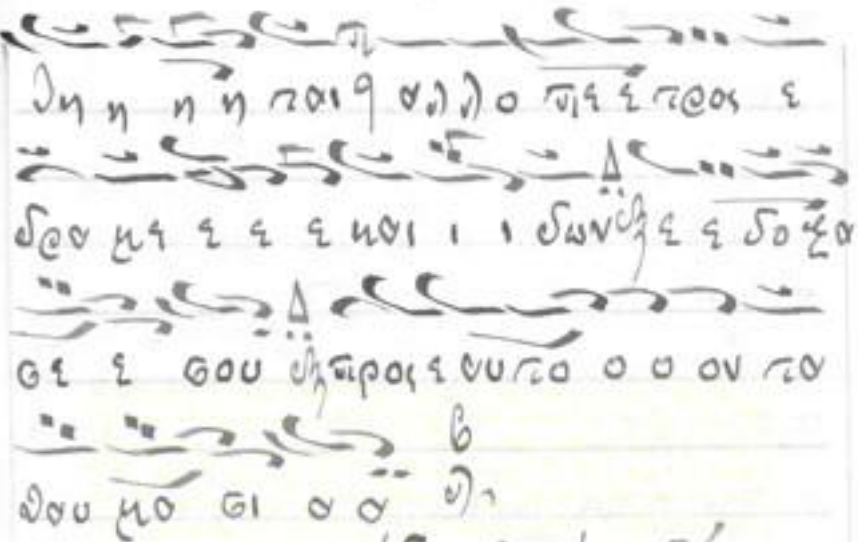 θη η η η ται αλλ ο πε ε τρος ε
δρα με ε ε ε και ι ι δων ε ε δο ξα
σε ε σου προς ε αυ το ο ο ον τα
θαυ μα σι α α